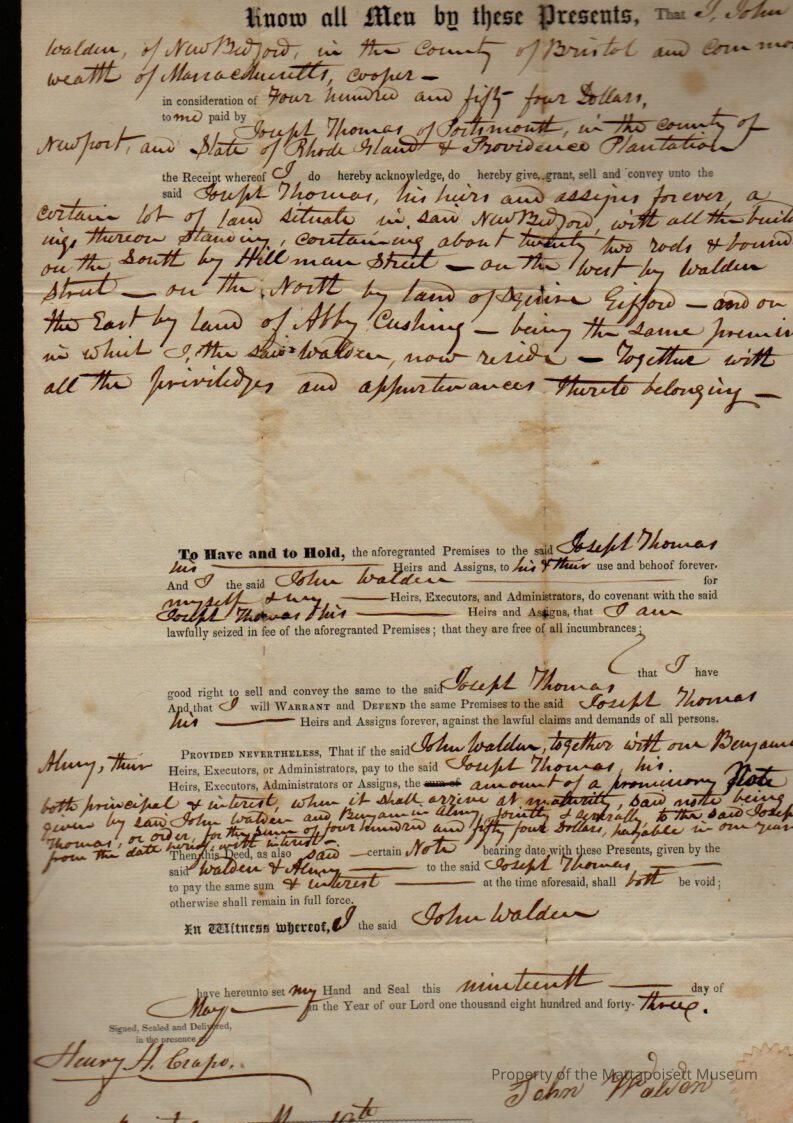 Know all Men by these Presents, That I, John
Walden, of New Bedford, in the county of Bristol and common
wealth of Massachusetts, cooper —
in consideration of Four hundred and fifty four Dollars,
to me paid by Joseph Thomas of Portsmouth, in the county of
Newport, and State of Rhode Island & Providence Plantation
the Receipt whereof I do hereby acknowledge, do hereby give, grant, sell and convey unto the
said Joseph Thomas, his heirs and assigns forever, a
certain lot of land situate in said New Bedford, with all the build
ings thereon standing, containing about twenty two rods & bound
on the South by Hillman Street — on the West by Walden
Street — on the North by land of Gifford — and on
the East by land of Abby Cushing — being the same premis
in which I, the said Walden, now reside — Together with
all the priviledges and appurtenances thereto belonging —
To Have and to Hold, the aforegranted Premises to the said Joseph Thomas
his — Heirs and Assigns, to his & their use and behoof forever.
And I the said John Walden — for
myself & my — Heirs, Executors, and Administrators, do covenant with the said
Joseph Thomas & his — Heirs and Assigns, that I am
lawfully seized in fee of the aforegranted Premises; that they are free of all incumbrances;
that I have
good right to sell and convey the same to the said Joseph Thomas
And that I will Warrant and Defend the same Premises to the said Joseph Thomas
his — Heirs and Assigns forever, against the lawful claims and demands of all persons.
Provided Nevertheless, That if the said John Walden, together with one Benjami
Almy, their Heirs, Executors, or Administrators, pay to the said Joseph Thomas, his
Heirs, Executors, Administrators or Assigns, the sum of amount of a promissory Note
both principal & interest, when it shall arrive at maturity, said note being
given by said John Walden and Benjamin Almy, jointly & severally, to the said Joseph
Thomas, or order, for the sum of four hundred and fifty four Dollars, payable in one year
from the date hereof, with interest —
Then this Deed, as also said — certain Note bearing date with these Presents, given by the
said Walden & Almy — to the said Joseph Thomas —
to pay the same sum & interest — at the time aforesaid, shall both be void;
otherwise shall remain in full force.
In Witness whereof, I the said John Walden
have hereunto set my Hand and Seal this nineteenth — day of
May — in the Year of our Lord one thousand eight hundred and forty-three.
Signed, Sealed and Delivered,
in the presence of
Henry H. Crapo.
Property of the Mattapoisett Museum
John Walden